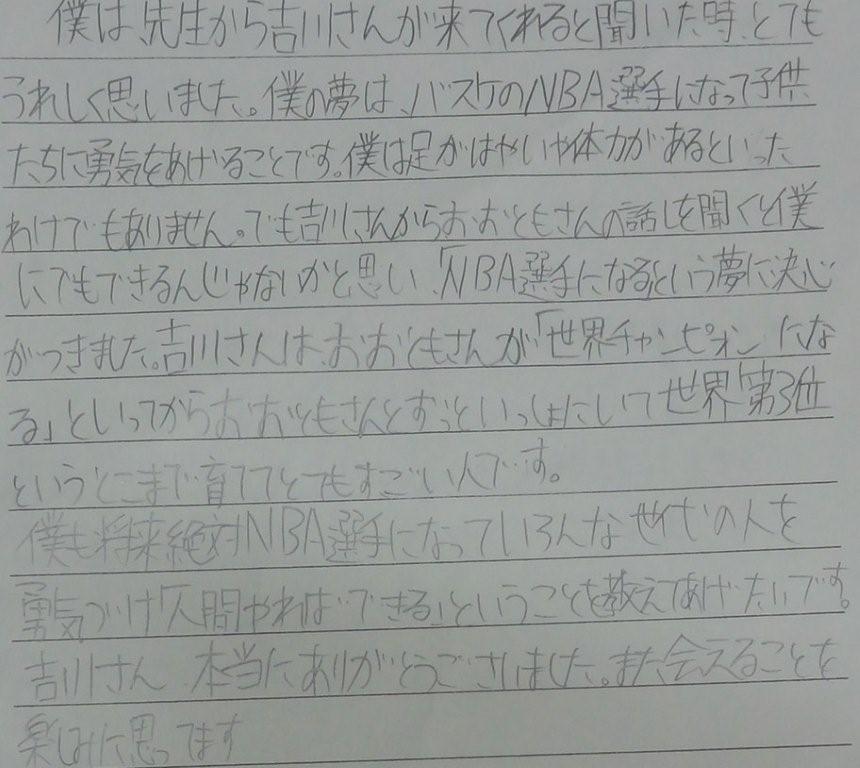 僕は、先生から吉川さんが来てくれると聞いた時、とても
うれしく思いました。僕の夢は、バスケのNBA選手になって子供
たちに勇気をあげることです。僕は足がはやいや体力があるといった
わけでもありません。でも吉川さんからおおともさんの話しを聞くと僕
にでもできるんじゃないかと思い、「NBA選手になる」という夢に決心
がつきました。吉川さんは、おおともさんが「世界チャンピオン」にな
る」といってからおおともさんとずっといっしょにいて世界第3位
というとこまで育ててとてもすごい人です。
僕も将来絶対NBA選手になっていろんな世代の人を
勇気づけ「人間やればできる」ということを教えてあげたいです。
吉川さん、本当にありがとうございました。また会えることを
楽しみに思ってます